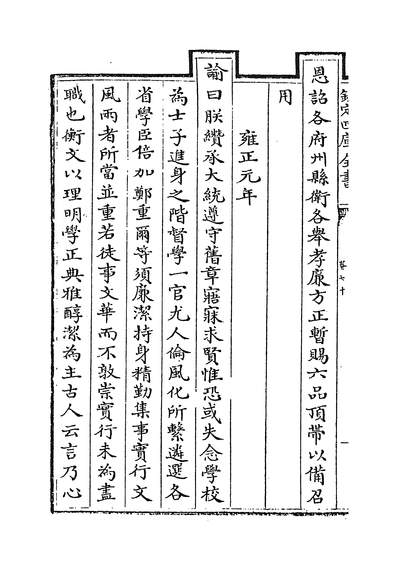 欽定四庫全書
卷七十
恩詔各府州縣衛各舉孝廉方正暫賜六品頂帶以備召
用
雍正元年
諭曰朕纘承大統遵守舊章寤寐求賢惟恐或失念學校
為士子進身之階督學一官尤人倫風化所繫遴選各
省學臣倍加鄭重爾等須廉潔持身精勤集事實行文
風兩者所當並重若徒事文華而不敦崇實行未為盡
職也衡文以理明學正典雅醇潔為主古人云言乃心